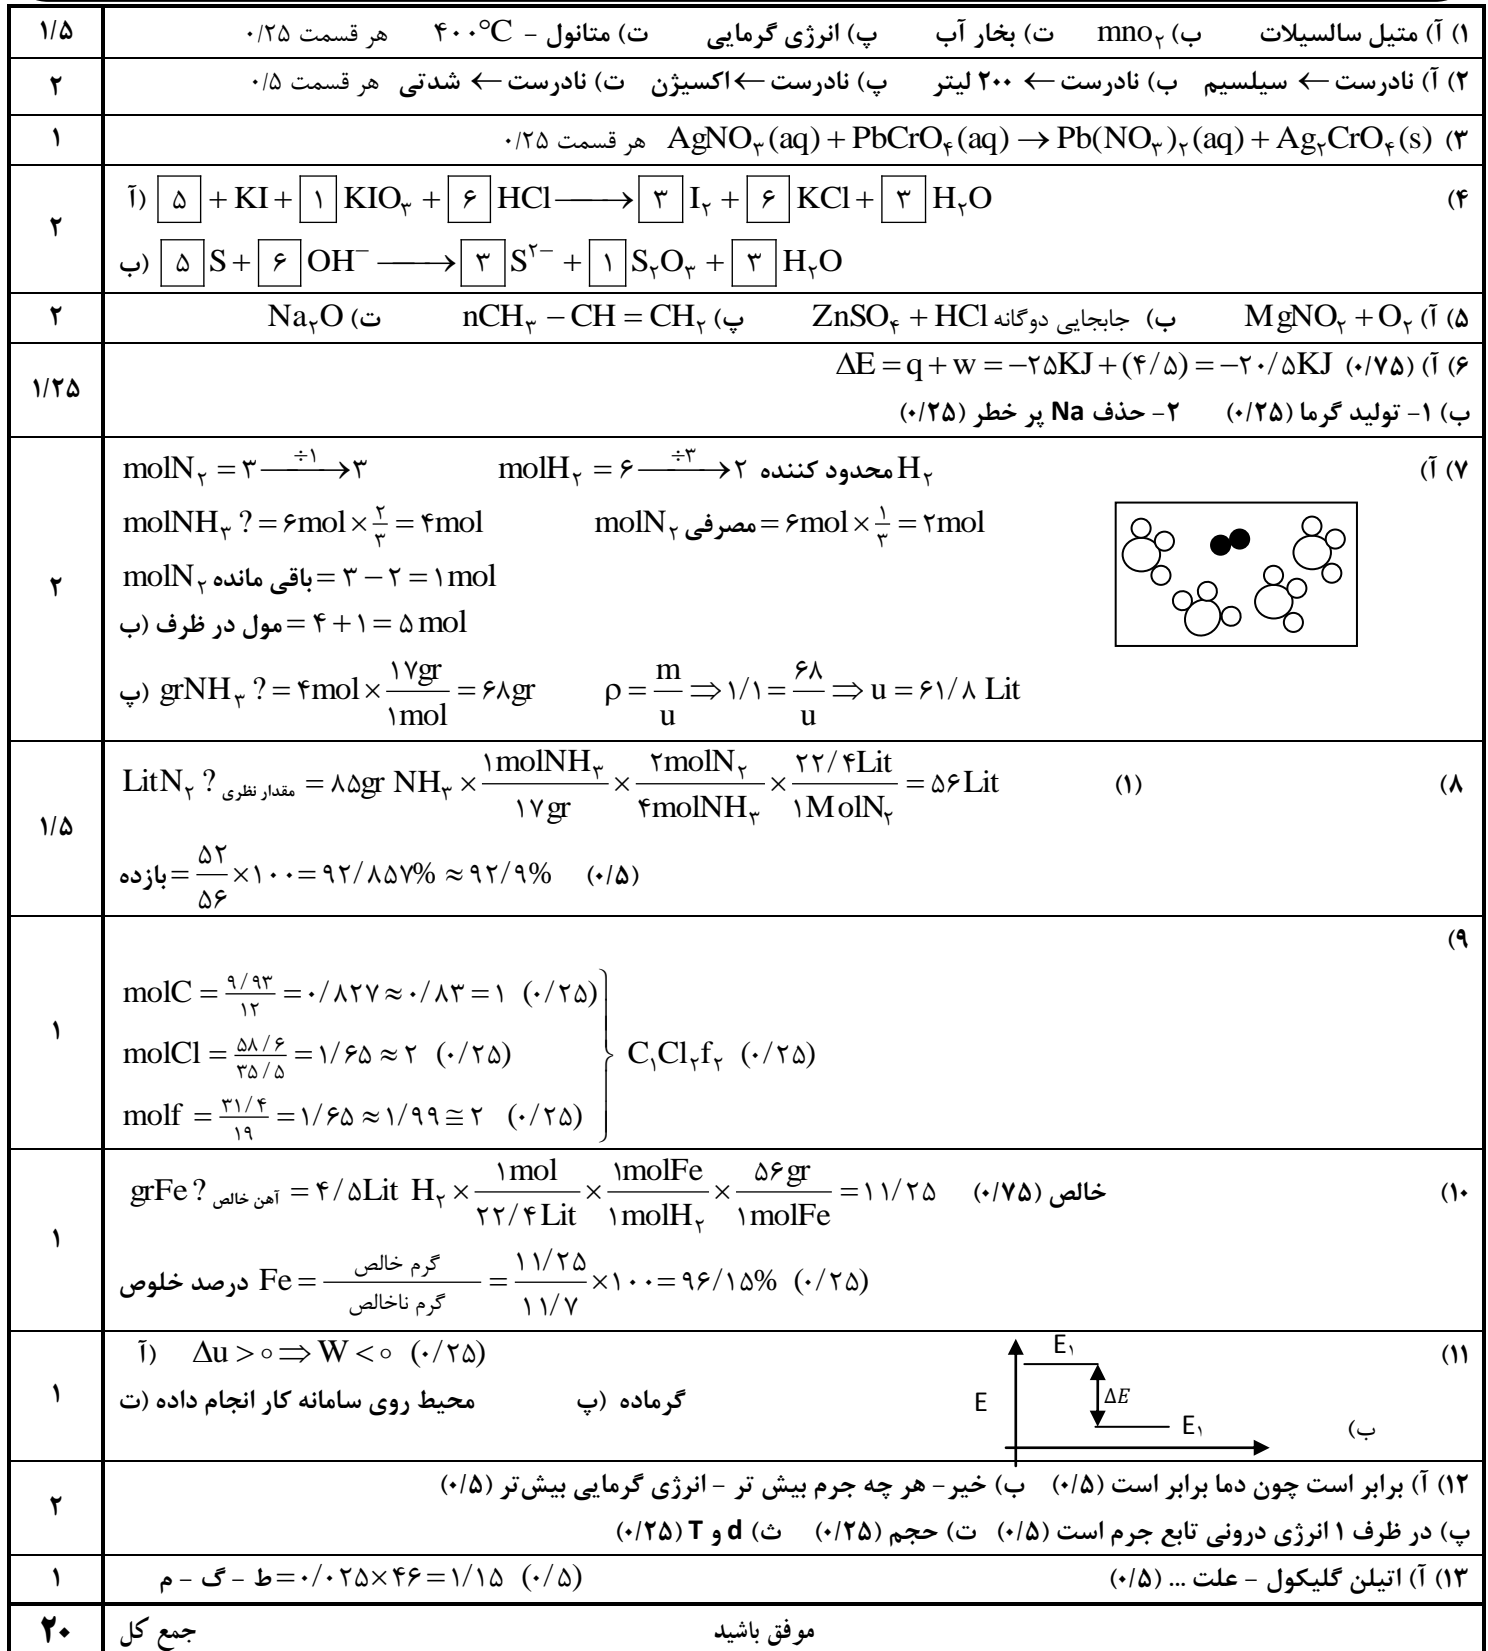 ۱) آ) متیل سالسیلات ب) mno۲ ت) بخار آب پ) انرژی گرمایی ت) متانول - ۴۰۰°C هر قسمت ۰/۲۵ ۱/۵
۲) آ) نادرست ← سیلسیم ب) نادرست ← ۲۰۰ لیتر پ) نادرست ← اکسیژن ت) نادرست ← شدتی هر قسمت ۰/۵ ۲
۳) AgNO۳(aq) + PbCrO۴(aq) → Pb(NO۳)۲(aq) + Ag۲CrO۴(s) هر قسمت ۰/۲۵ ۱
۴) آ) ۵ + KI + ۱ KIO۳ + ۶ HCl ⟶ ۳ I۲ + ۶ KCl + ۳ H۲O ۲
ب) ۵ S + ۶ OH⁻ ⟶ ۳ S۲− + ۱ S۲O۳ + ۳ H۲O
۵) آ) MgNO۲ + O۲ ب) جابجایی دوگانه ZnSO۴ + HCl پ) nCH۳ − CH = CH۲ ت) Na۲O ۲
۶) آ) ΔE = q + w = −۲۵KJ + (۴/۵) = −۲۰/۵KJ (۰/۷۵) ۱/۲۵
ب) ۱- تولید گرما (۰/۲۵) ۲- حذف Na پر خطر (۰/۲۵)
۷) آ) molN۲ = ۳ ÷۱→ ۳ molH۲ = ۶ ÷۳→ ۲ محدود کننده H۲ ۲
molNH۳ ? = ۶mol × ۲/۳ = ۴mol molN۲ مصرفی = ۶mol × ۱/۳ = ۲mol
molN۲ باقی مانده = ۳ − ۲ = ۱mol
ب) مول در ظرف = ۴ + ۱ = ۵ mol
پ) grNH۳ ? = ۴mol × ۱۷gr/۱mol = ۶۸gr ρ = m/u ⇒ ۱/۱ = ۶۸/u ⇒ u = ۶۱/۸ Lit
۸) LitN۲ ? مقدار نظری = ۸۵gr NH۳ × ۱molNH۳/۱۷gr × ۲molN۲/۴molNH۳ × ۲۲/۴Lit/۱MolN۲ = ۵۶Lit (۱) ۱/۵
بازده = ۵۲/۵۶ × ۱۰۰ = ۹۲/۸۵۷% ≈ ۹۲/۹% (۰/۵)
۹)
molC = ۹/۹۳/۱۲ = ۰/۸۲۷ ≈ ۰/۸۳ = ۱ (۰/۲۵)
molCl = ۵۸/۶/۳۵/۵ = ۱/۶۵ ≈ ۲ (۰/۲۵) } C۱Cl۲f۲ (۰/۲۵) ۱
molf = ۳۱/۴/۱۹ = ۱/۶۵ ≈ ۱/۹۹ ≅ ۲ (۰/۲۵)
۱۰) grFe ? آهن خالص = ۴/۵Lit H۲ × ۱mol/۲۲/۴Lit × ۱molFe/۱molH۲ × ۵۶gr/۱molFe = ۱۱/۲۵ خالص (۰/۷۵) ۱
درصد خلوص Fe = گرم خالص/گرم ناخالص = ۱۱/۲۵/۱۱/۷ × ۱۰۰ = ۹۶/۱۵% (۰/۲۵)
۱۱) آ) Δu > ∘ ⇒ W < ∘ (۰/۲۵) ۱
ب) E E۱ ΔE E۱
پ) گرماده ت) محیط روی سامانه کار انجام داده
۱۲) آ) برابر است چون دما برابر است (۰/۵) ب) خیر- هر چه جرم بیش تر - انرژی گرمایی بیش‌تر (۰/۵) ۲
پ) در ظرف ۱ انرژی درونی تابع جرم است (۰/۵) ت) حجم (۰/۲۵) ث) d و T (۰/۲۵)
۱۳) آ) اتیلن گلیکول - علت ... (۰/۵) ط - گ - م = ۰/۰۲۵×۴۶ = ۱/۱۵ (۰/۵) ۱
موفق باشید جمع کل ۲۰